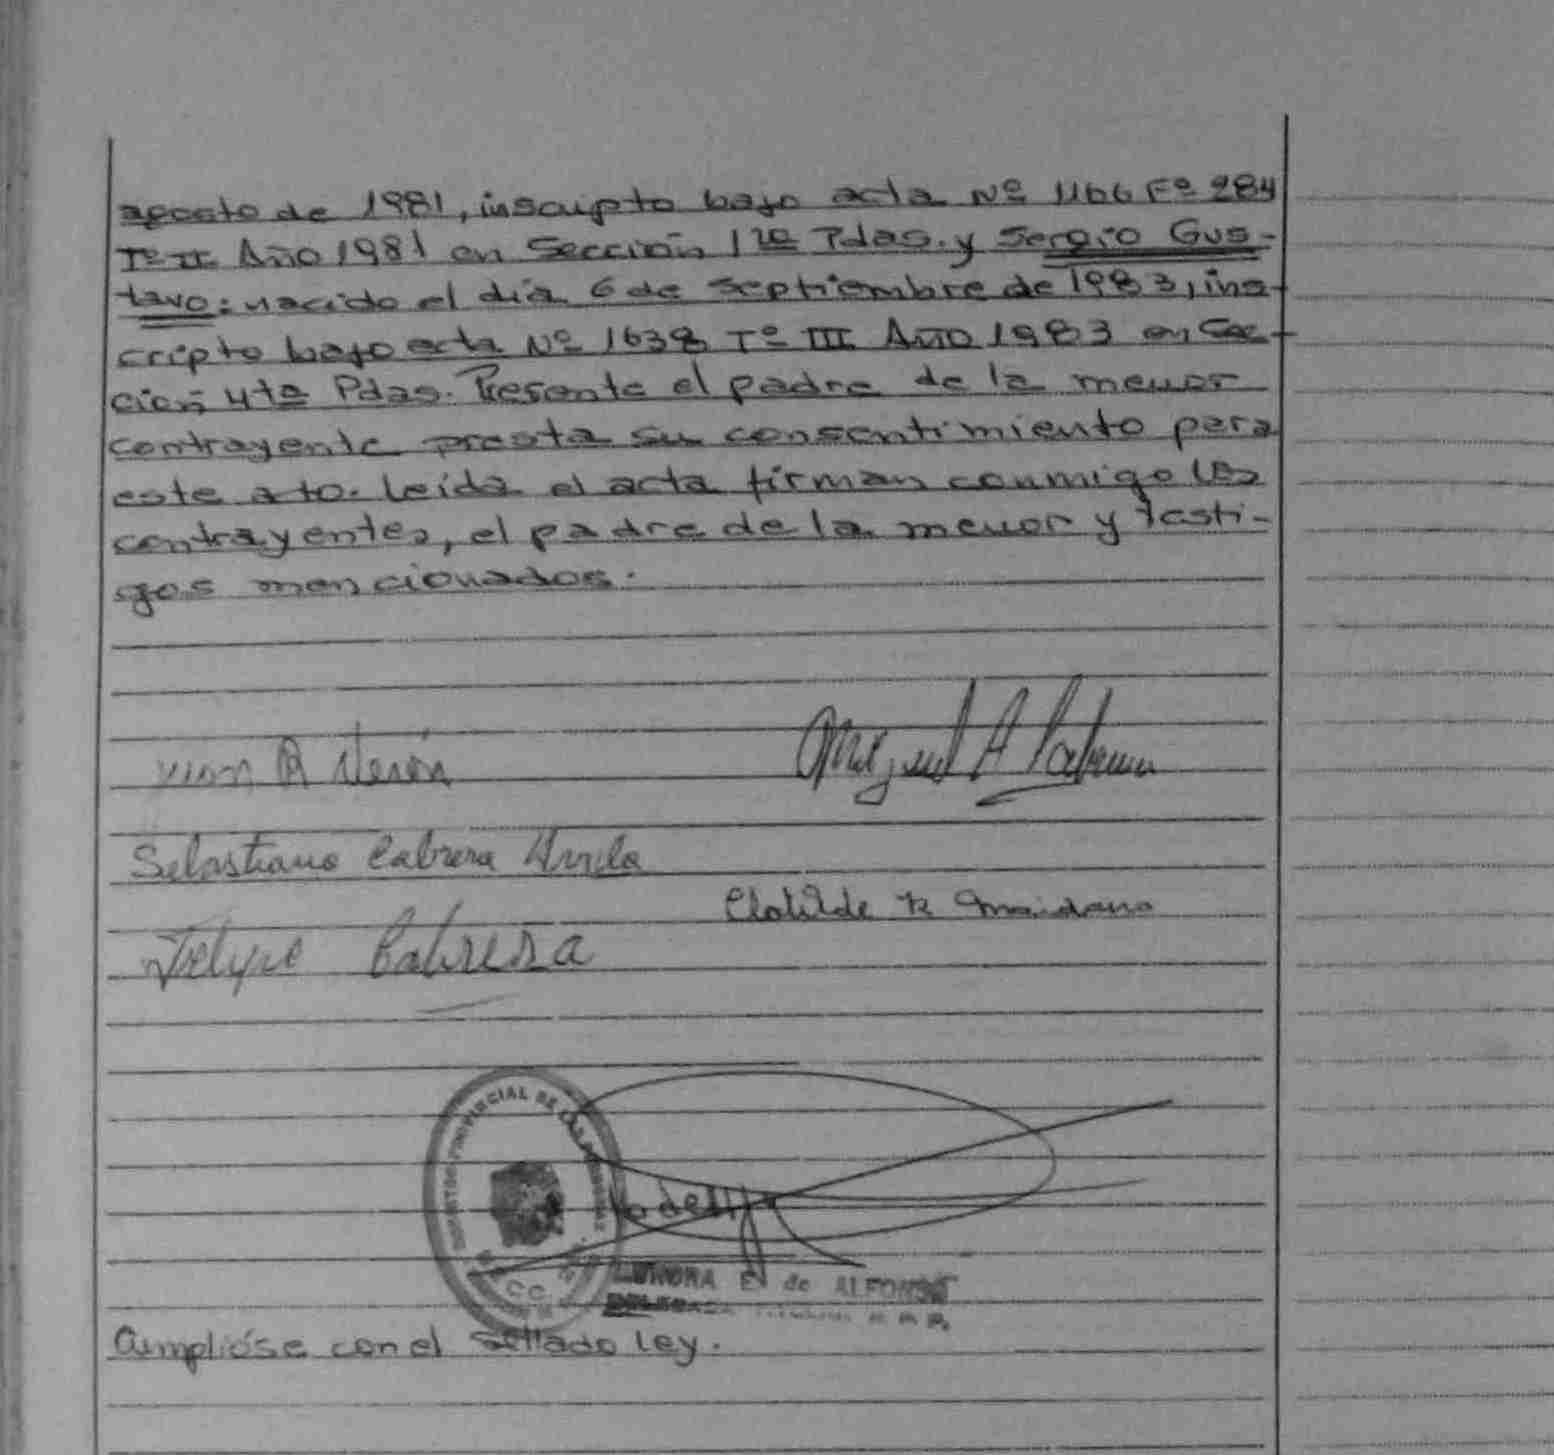 agosto de 1981, inscripto bajo acta Nº 1166 Fº 284
Tº II Año 1981 en Sección 1ra Pdas. y Sergio Gus-
tavo: nacido el día 6 de septiembre de 1983, ins-
cripto bajo acta Nº 1638 Tº III Año 1983 en Sec-
ción 4ta Pdas. Presente el padre de la menor
contrayente presta su consentimiento para
este ato. Leída el acta firman conmigo los
contrayentes, el padre de la menor y testi-
gos mencionados.
Miguel A Cabrera
Sebastiana Cabrera
Clotilde R Maidana
Felype Cabrera
PROVINCIAL DE LAS PERSONAS
E de ALFONSO
Cumplióse con el sellado ley.